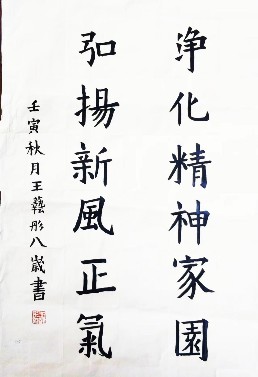 浄化精神家園
弘揚新風正氣
壬寅秋月王藝彤八歲書